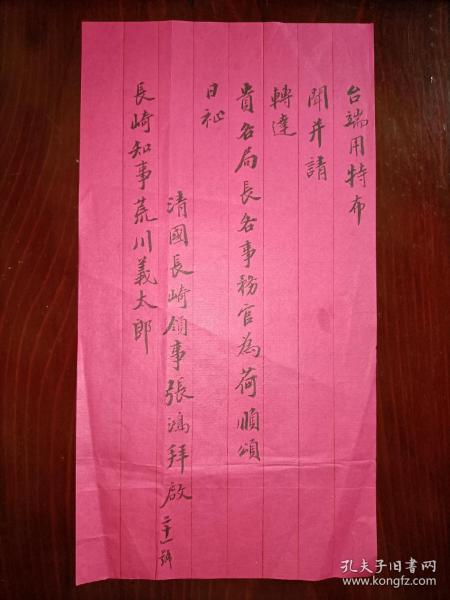 台端用特布
聞并請
轉達
貴各局長各事務官為荷順頌
日祉
清國長崎領事張鴻拜啟 二十一號
長崎知事荒川義太郎
孔夫子旧书网
www.kongfz.com